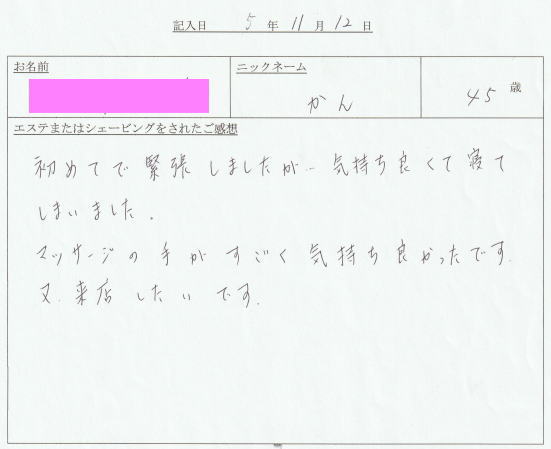 記入日 5 年 11 月 12 日
お名前 ニックネーム
かん 45 歳
エステまたはシェービングをされたご感想
初めてで緊張しましたが… 気持ち良くて寝て
しまいました。
マッサージの手がすごく気持ち良かったです。
又、来店したいです。